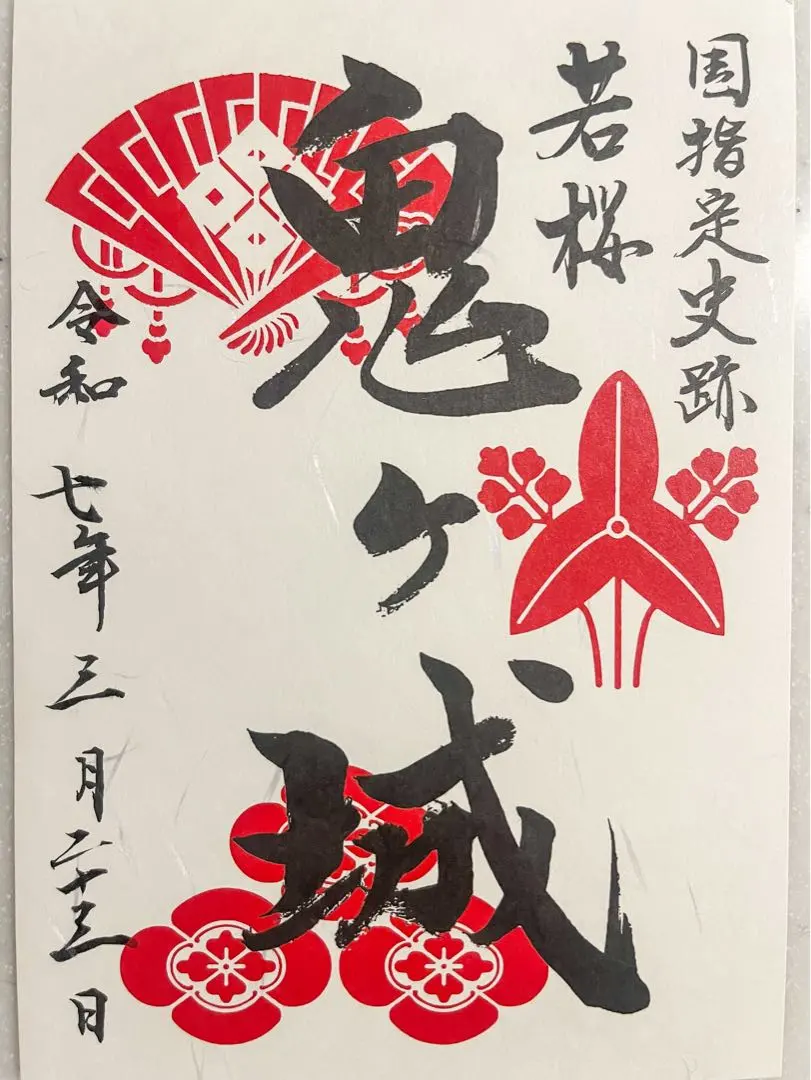 国指定史跡
若桜
鬼ヶ城
令和七年三月二十三日